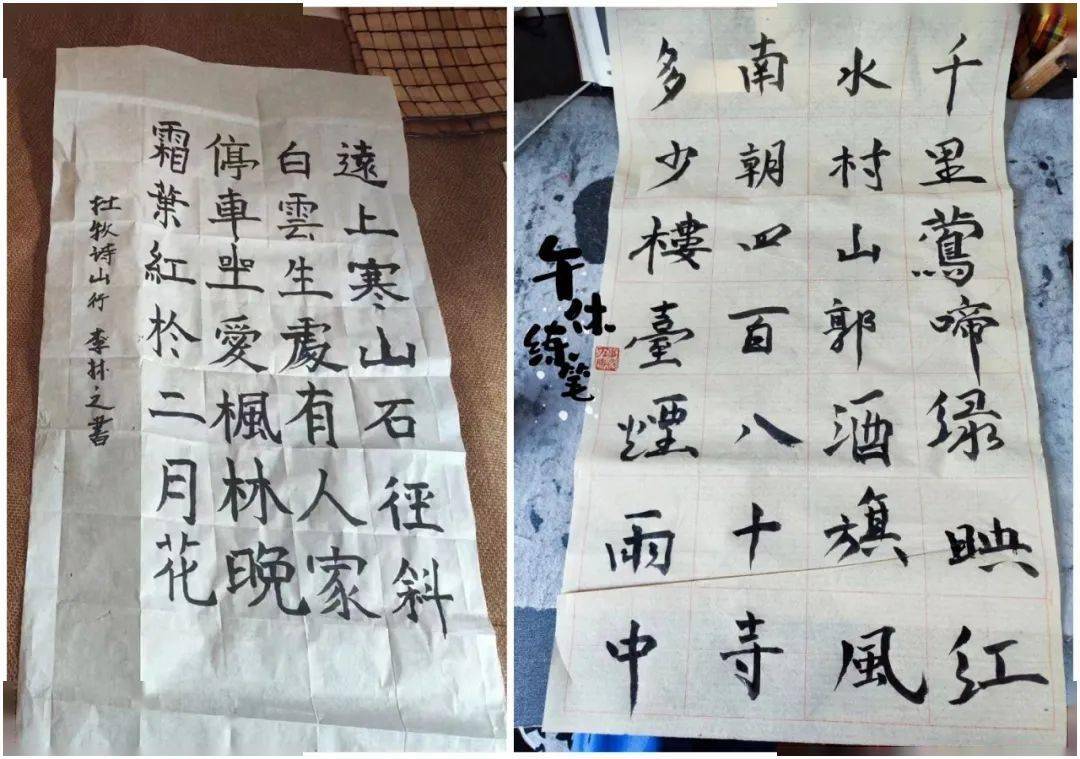 遠上寒山石徑斜
白雲生處有人家
停車坐愛楓林晚
霜葉紅於二月花
杜牧诗山行 李林之書
千里鶯啼绿暎红
水村山郭酒旗風
南朝四百八十寺
多少樓臺煙雨中
午休
练笔